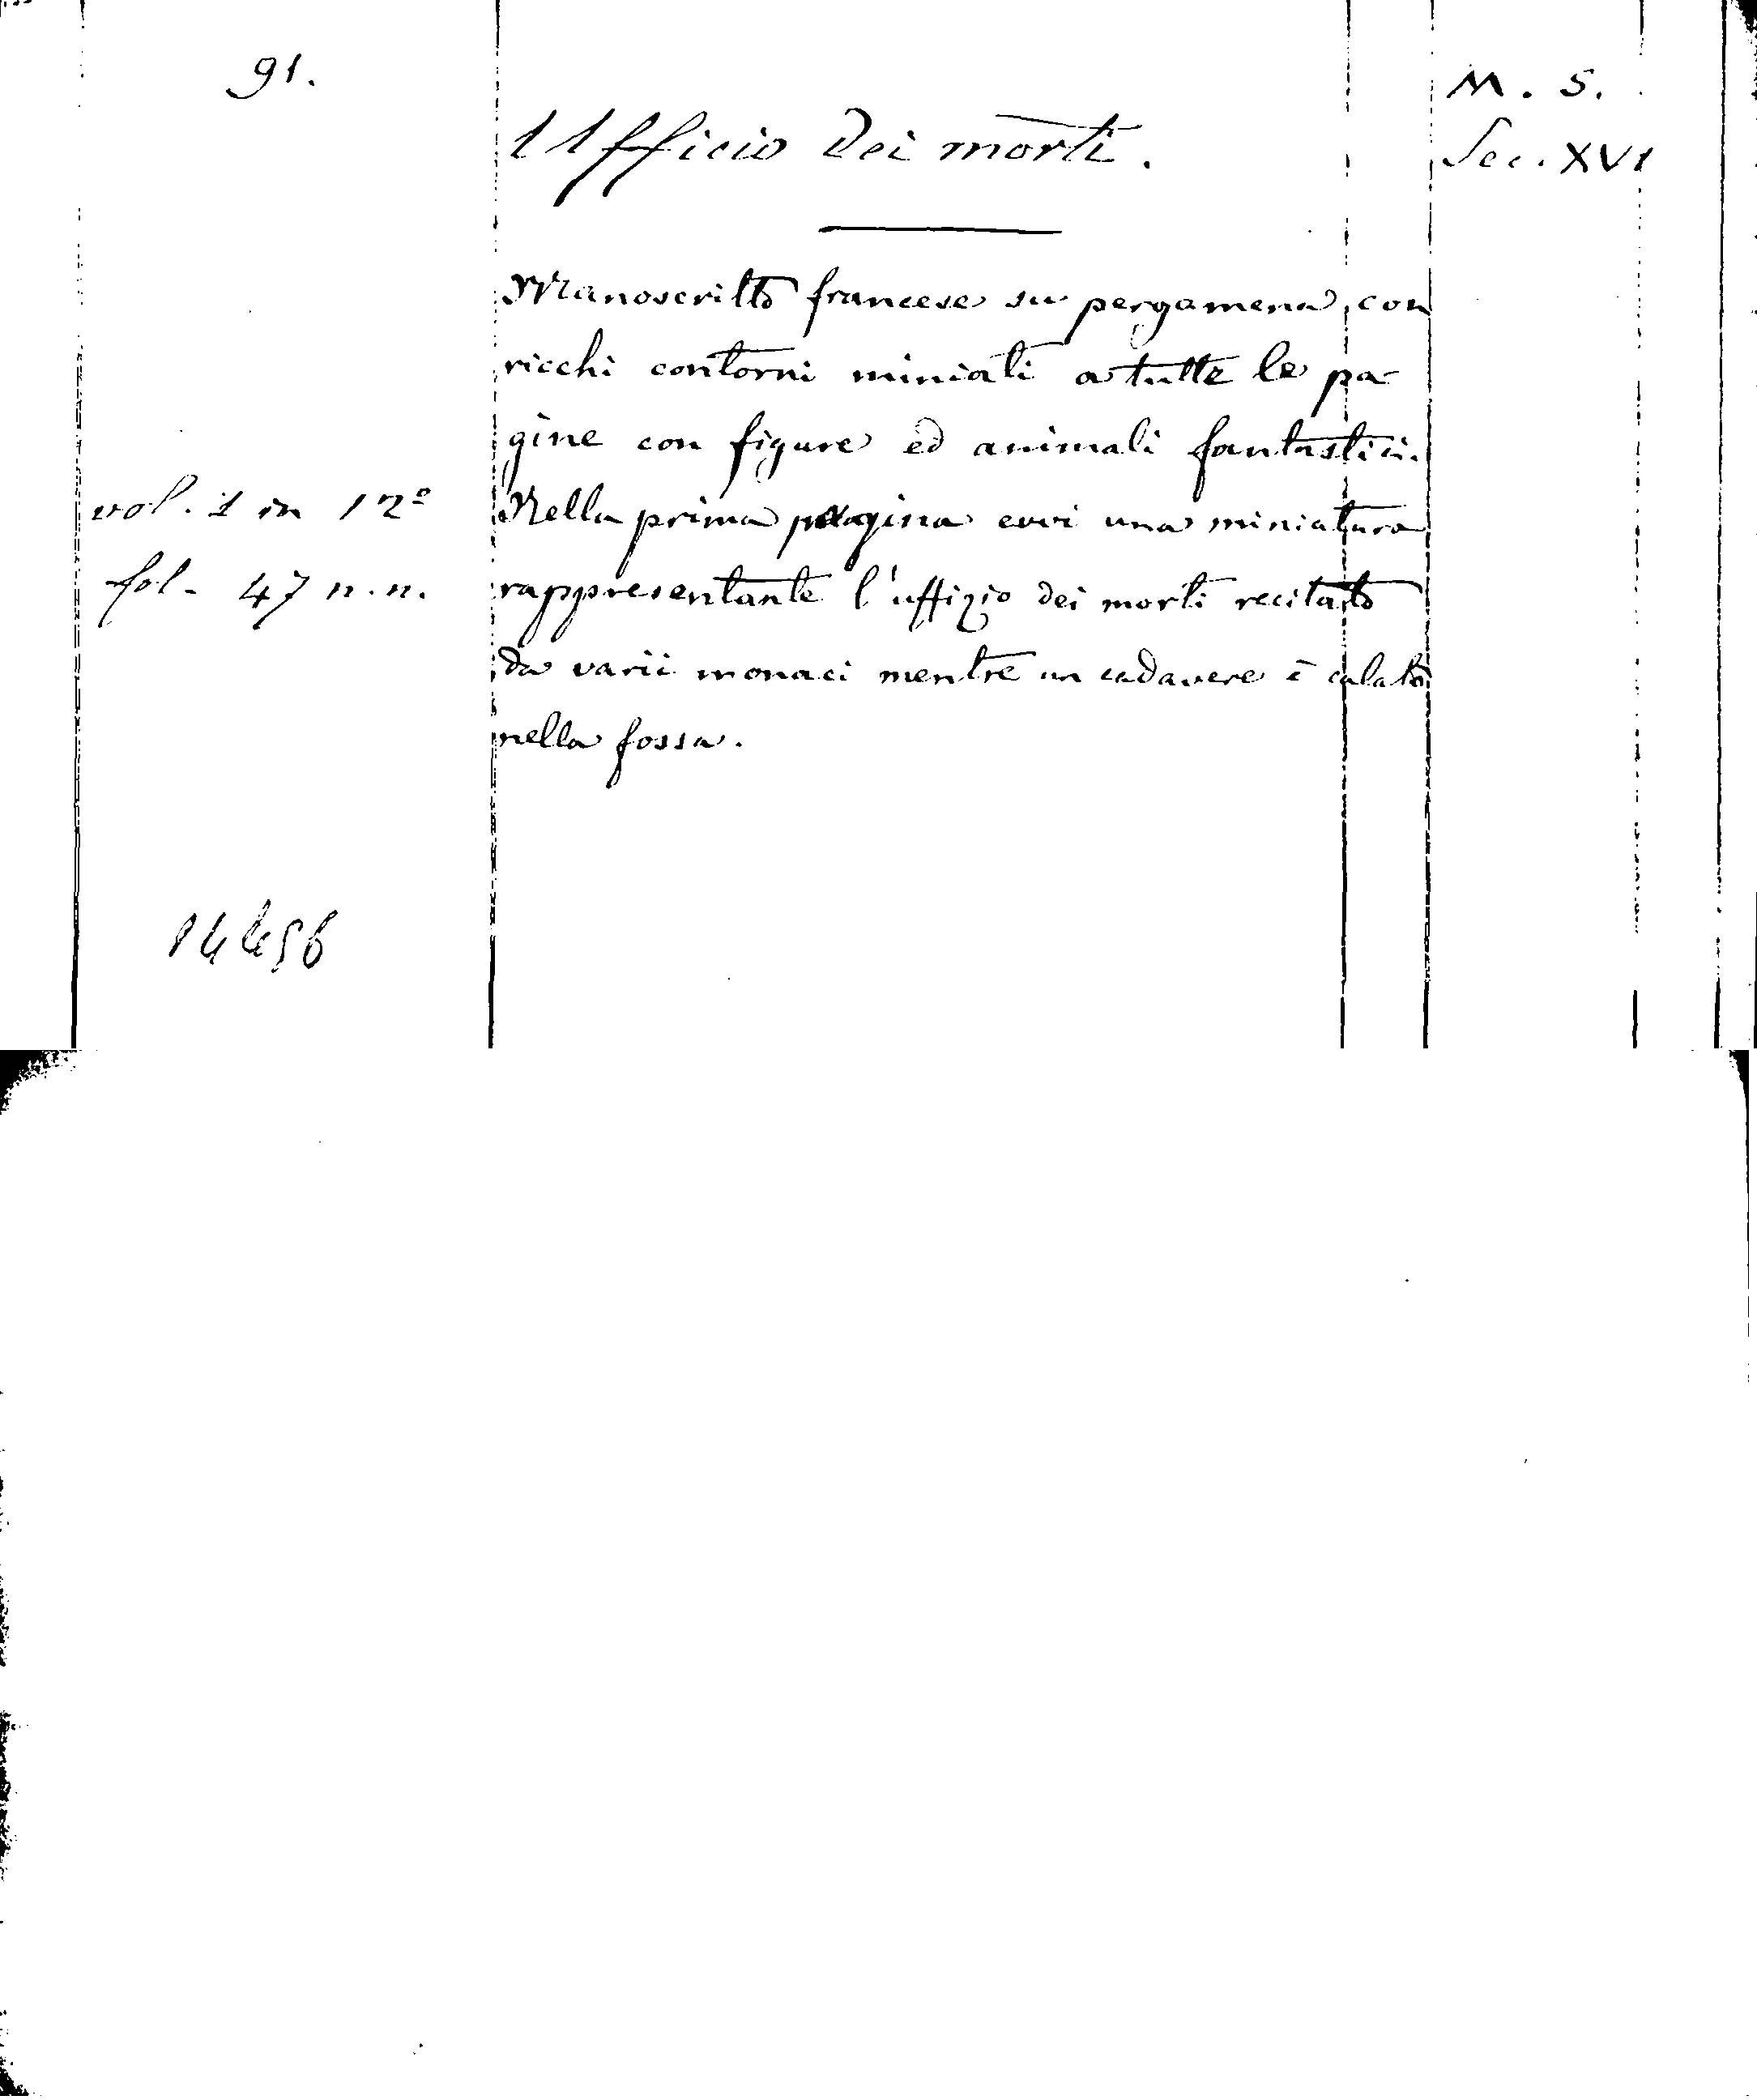 91.
M. S.
Ufficio dei morti.
Sec. XVI
Manoscritto francese su pergamena, con
ricchi contorni miniati a tutte le pa-
gine con figure ed animali fantastici.
vol. 1 in 12º
Nella prima pagina evvi una miniatura
fol. 47 n. n.
rappresentante l'uffizio dei morti recitato
da varii monaci mentre un cadavere è calato
nella fossa.
14456